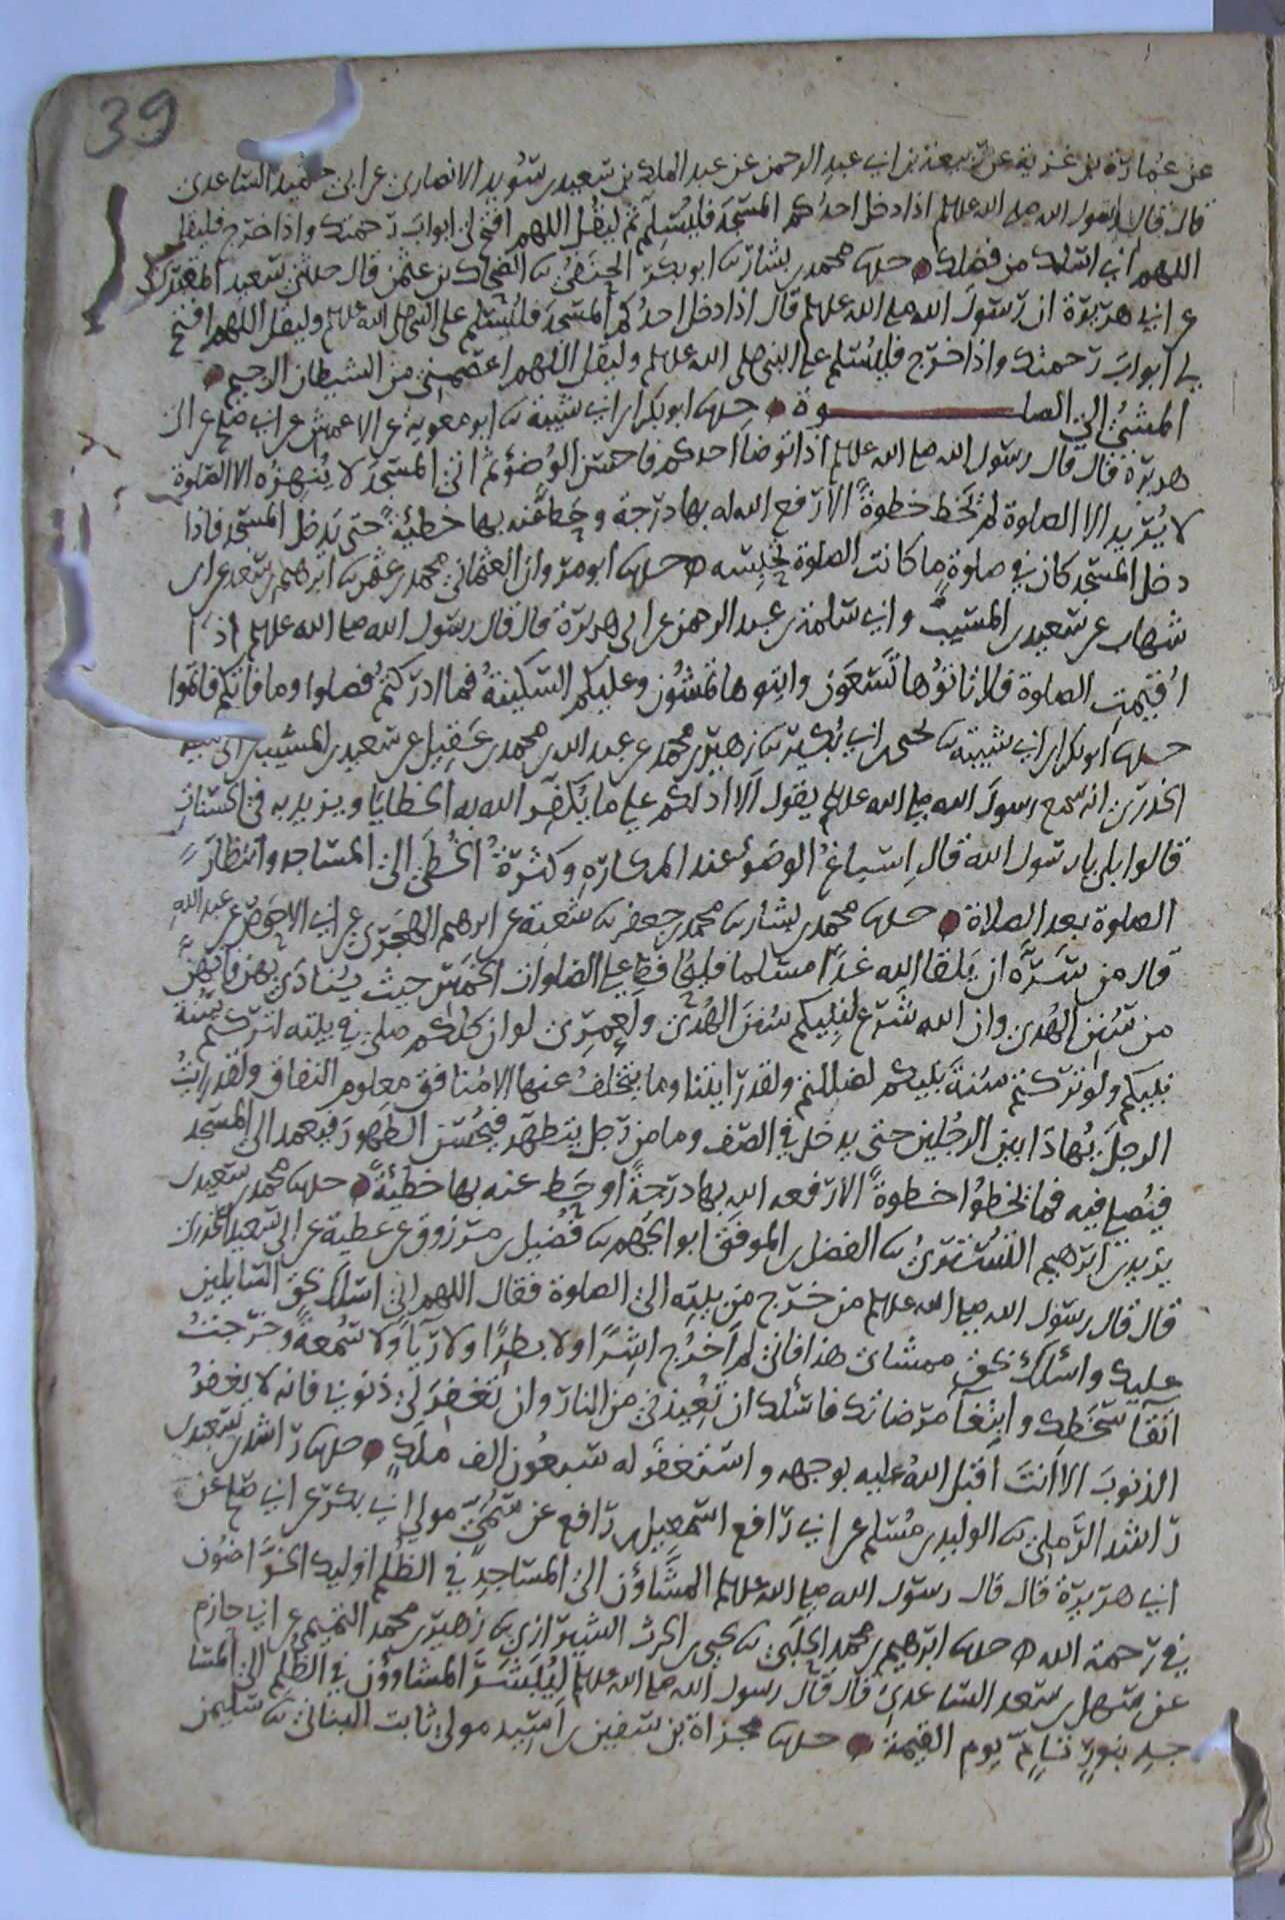 39
عن عمارة بن غزية عن ربيعة بن ابي عبد الرحمن عن عبد الملك بن سعيد بن سويد الانصاري عن ابي حميد الساعدي
قال قال رسول الله صلى الله عليه وسلم اذا دخل احدكم المسجد فليسلم ثم ليقل اللهم افتح لي ابواب رحمتك واذا خرج فليقل
اللهم اني اسلك من فضلك حدثنا محمد بن بشار ثنا ابو بكر الحنفي ثنا الضحاك بن عثمن قال حدثني سعيد المقبري
عن ابي هريرة ان رسول الله صلى الله عليه وسلم قال اذا دخل احدكم المسجد فليسلم على النبي صلى الله عليه وسلم وليقل اللهم افتح
لي ابواب رحمتك واذا خرج فليسلم على النبي صلى الله عليه وسلم وليقل اللهم اعصمني من الشيطان الرجيم
المشي الى الصلوة حدثنا ابو بكر بن ابي شيبة ثنا ابو معوية عن الاعمش عن ابي صلح عن ابي
هريرة قال قال رسول الله صلى الله عليه وسلم اذا توضا احدكم فاحسن الوضؤ ثم اتى المسجد لا ينهزه الا الصلوة
لا يريد الا الصلوة لم يخط خطوة الا رفع الله له بها درجة وحط عنه بها خطيئة حتى يدخل المسجد فاذا
دخل المسجد كان في صلوة ما كانت الصلوة تحبسه حدثنا ابو مروان العثماني محمد بن عثمن ثنا ابرهيم بن سعد عن ابن
شهاب عن سعيد بن المسيب وابي سلمة بن عبد الرحمن عن ابي هريرة قال قال رسول الله صلى الله عليه وسلم اذا
اقيمت الصلوة فلا تاتوها تسعون واتوها تمشون وعليكم السكينة فما ادركتم فصلوا وما فاتكم فاتموا
حدثنا ابو بكر بن ابي شيبة ثنا يحيى بن ابي بكير ثنا زهير بن محمد عن عبد الله بن محمد بن عقيل عن سعيد بن المسيب عن ابي سعيد
الخدري انه سمع رسول الله صلى الله عليه وسلم يقول الا ادلكم على ما يكفر الله به الخطايا ويزيد به في الحسنات
قالوا بلى يا رسول الله قال اسباغ الوضوء عند المكاره وكثرة الخطى الى المساجد وانتظار
الصلوة بعد الصلاة حدثنا محمد بن بشار ثنا محمد بن جعفر ثنا شعبة عن ابرهيم الهجري عن ابي الاحوص عن عبد الله
قال من سره ان يلقا الله غدا مسلما فليحافظ على الصلوات الخمس حيث ينادى بهن فانهن
من سنن الهدى وان الله شرع لنبيكم سنن الهدى ولعمري لو ان كلكم صلى في بيته لتركتم سنة
نبيكم ولو تركتم سنة نبيكم لضللتم ولقد رايتنا وما يتخلف عنها الا منافق معلوم النفاق ولقد رايت
الرجل يهادا بين الرجلين حتى يدخل في الصف وما من رجل يتطهر فيحسن الطهور فيعمد الى المسجد
فيصلي فيه فما يخطوا خطوة الا رفعه الله بها درجة او حط عنه بها خطيئة حدثنا محمد بن سعيد بن
يزيد بن ابرهيم التستري ثنا الفضل بن الموفق ابو الجهم ثنا فضيل بن مرزوق عن عطية عن ابي سعيد الخدري
قال قال رسول الله صلى الله عليه وسلم من خرج من بيته الى الصلوة فقال اللهم اني اسلك بحق السايلين
عليك واسلك بحق ممشاي هذا فاني لم اخرج اشرا ولا بطرا ولا ريآ ولا سمعة وخرجت
اتقآ سخطك وابتغآ مرضاتك فاسلك ان تعيذني من النار وان تغفر لي ذنوبي فانه لا يغفر
الذنوب الا انت اقبل الله عليه بوجهه واستغفر له سبعون الف ملك حدثنا راشد بن سعيد بن
راشد الرملي ثنا الوليد بن مسلم عن ابي رافع اسمعيل بن رافع عن سمي مولى ابي بكر عن ابي صلح عن
ابي هريرة قال قال رسول الله صلى الله عليه وسلم المشاؤن الى المساجد في الظلم اوليك الخواضون
في رحمة الله حدثنا ابرهيم بن محمد الحلبي ثنا يحيى بن الحرث الشيرازي ثنا زهير بن محمد التميمي عن ابي حازم
عن سهل بن سعد الساعدي قال قال رسول الله صلى الله عليه وسلم ليبشر المشاوون في الظلم الى المسا
جد بنور تام يوم القيمة حدثنا مجزاة بن سفين بن اسيد مولى ثابت البناني ثنا سليمن